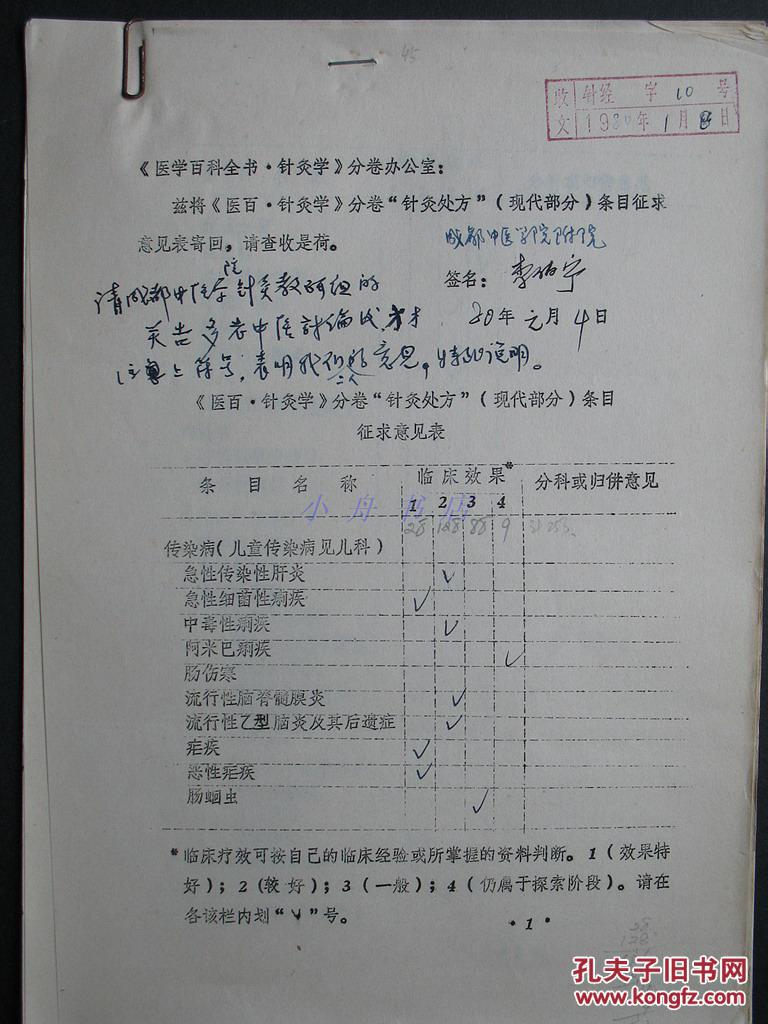 45
收 针经 字 10 号
文 1980年 1月8日
《医学百科全书·针灸学》分卷办公室：
兹将《医百·针灸学》分卷“针灸处方”（现代部分）条目征求
意见表寄回，请查收是荷。
成都中医学院附院
签名：李仲宇
80年元月4日
请成都中医学院针灸教研组的
老中医讨论
注意上符号，表明我们二人的意见，特此说明。
《医百·针灸学》分卷“针灸处方”（现代部分）条目
征求意见表
条目名称 临床效果* 分科或归併意见
1 2 3 4
28 128 88 9
传染病（儿童传染病见儿科）
急性传染性肝炎 ✓
急性细菌性痢疾 ✓
中毒性痢疾 ✓
阿米巴痢疾 ✓
肠伤寒
流行性脑脊髓膜炎 ✓
流行性乙型脑炎及其后遗症 ✓
疟疾 ✓
恶性疟疾 ✓
肠蛔虫 ✓
*临床疗效可按自己的临床经验或所掌握的资料判断。1（效果特
好）；2（较好）；3（一般）；4（仍属于探索阶段）。请在
各该栏内划“✓”号。
·1·
28
128
小舟书店
孔夫子旧书网
www.kongfz.com